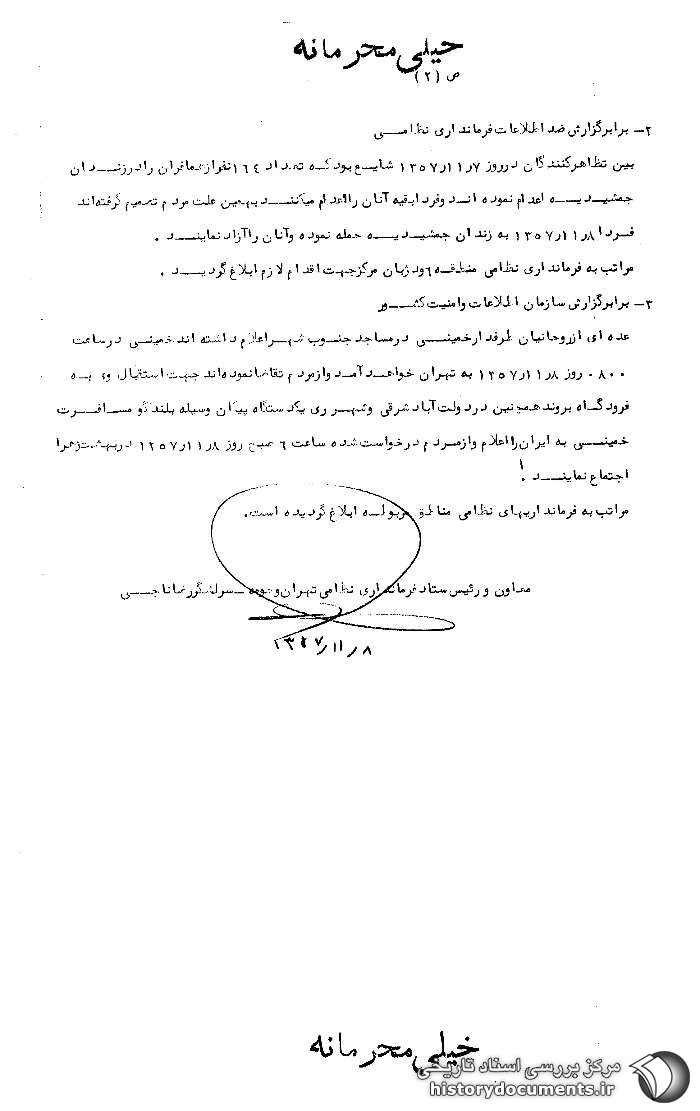 خیلی محرمانه
ص (۲)
۲– برابر گزارش ضد اطلاعات فرمانداری نظامی
بین تظاهرکنندگان در روز ۱۳۵۷/۱۱/۷ شایع بود که تعداد ۱۶۴ نفر از همافران را در زندان
جمشیدیه اعدام نموده اند و فردا بقیه آنان را اعدام میکنند بهمین علت مردم تصمیم گرفته‌اند
فردا ۱۳۵۷/۱۱/۸ به زندان جمشیدیه حمله نموده و آنان را آزاد نمایند .
مراتب به فرمانداری نظامی منطقه ۶ و دژبان مرکز جهت اقدام لازم ابلاغ گردید .
۳– برابر گزارش سازمان اطلاعات و امنیت کشور
عده ای از روحانیان طرفدار خمینی در مساجد جنوب شهر اعلام داشته اند خمینی در ساعت
۰۸۰۰ روز ۱۳۵۷/۱۱/۸ به تهران خواهد آمد و از مردم تقاضا نموده‌اند جهت استقبال وی به
فرودگاه بروند همچنین در دولت آباد شرقی و شهر ری یکدستگاه پیکان وسیله بلندگو مسافرت
خمینی به ایران را اعلام و از مردم درخواست شده ساعت ۶ صبح روز ۱۳۵۷/۱۱/۸ در بهشت زهرا
اجتماع نمایند .
مراتب به فرمانداریهای نظامی مناطق مربوطه ابلاغ گردیده است.
معاون و رئیس ستاد فرمانداری نظامی تهران و حومه – سرلشگر رضا ناجی
۱۳۵۷/۱۱/۸
خیلی محرمانه
مرکز بررسی اسناد تاریخی
historydocuments.ir